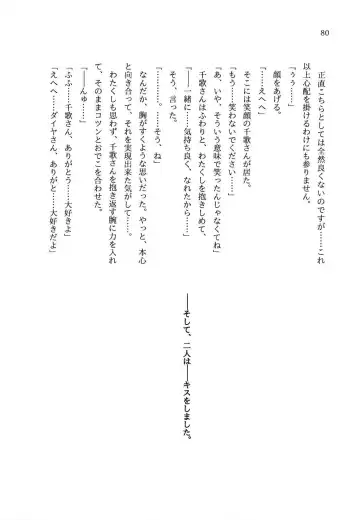 80
正直こちらとしては全然良くないのですが……これ
以上心配を掛けるわけにも参りません。
「ぅぅ……」
顔をあげる。
「……えへへ」
そこには笑顔の千歌さんが居た。
「もう……笑わないでください……」
「あ、いや、そういう意味で笑ったんじゃなくてね」
千歌さんはふわりと、わたくしを抱きしめて、
「――一緒に……気持ち良く、なれたから……」
そう、言った。
「………。……そう、ね」
なんだか、胸がすくような思いだった。やっと、本心
と向き合って、それを実現出来た気がして――
わたくしも思わず、千歌さんを抱き返す腕に力を入れ
て、そのままコツンとおでこを合わせた。
「――んゅ……」
「ふふ……千歌さん、ありがとう……大好きよ」
「えへへ……ダイヤさん、ありがと……大好きだよ」
――そして、二人は――キスをしました。